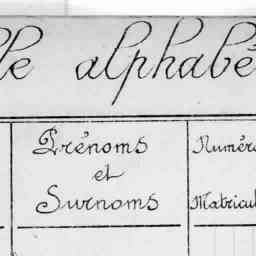 le alphabé
Prénoms
et
Surnoms
Numéro
Matricul